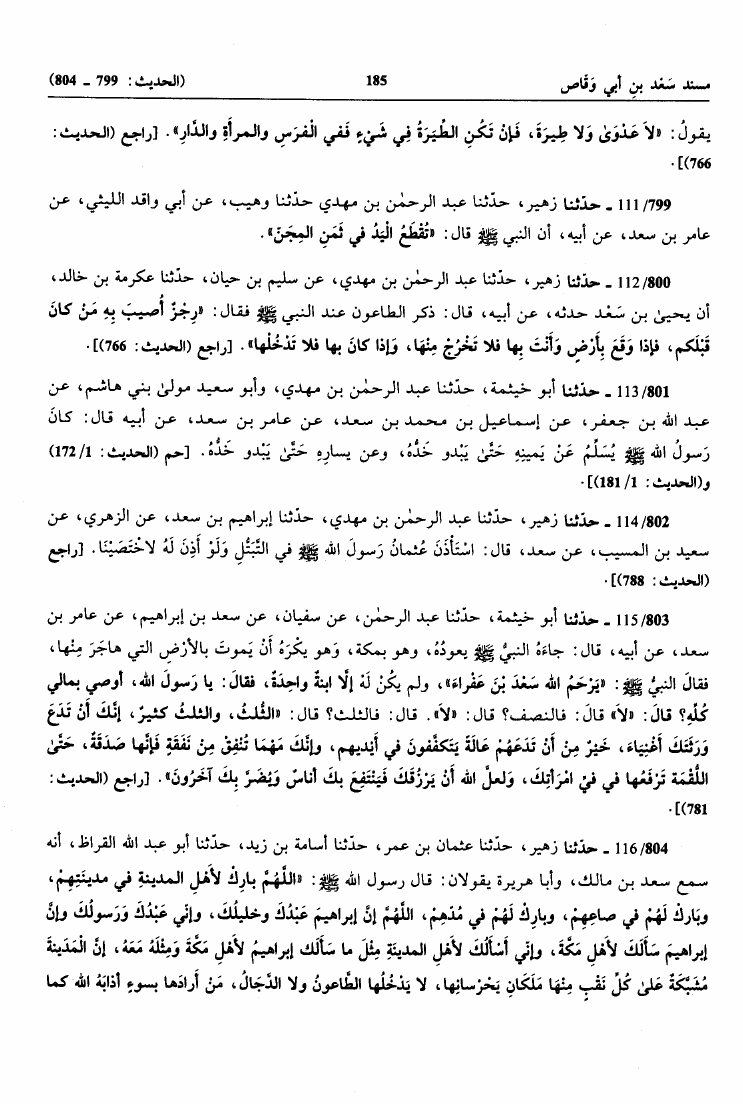 مسند سَعْد بنِ أبي وَقَّاص 185 (الحديث: 799 ـ 804)
يقولُ: «لاَ عَدْوَىٰ وَلا طِيرَةَ، فَإنْ تَكُنِ الطِّيَرَةُ فِي شَيْءٍ فَفي الْفَرَسِ والمرأَةِ والدَّارِ». [راجع (الحديث:
766)].
111/799 ـ حدّثنا زهير، حدّثنا عبد الرحمٰن بن مهدي حدّثنا وهيب، عن أبي واقد الليثي، عن
عامر بن سعد، عن أبيه، أن النبي ﷺ قال: «تُقْطَعُ الْيَدُ في ثَمَنِ المِجَنِّ».
112/800 ـ حدّثنا زهير، حدّثنا عبد الرحمٰن بن مهدي، عن سليم بن حيان، حدّثنا عكرمة بن خالد،
أن يحيىٰ بن سَعْد حدثه، عن أبيه، قال: ذكر الطاعون عند النبي ﷺ فقال: «رِجْزٌ أُصيبَ بِهِ مَنْ كانَ
قَبْلَكم، فإذا وَقَعَ بِأَرْضٍ وَأَنْتَ بِها فلا تَخْرُجْ مِنْهَا، وَإذا كانَ بها فلا تَدْخُلْها». [راجع (الحديث: 766)].
113/801 ـ حدّثنا أبو خيثمة، حدّثنا عبد الرحمٰن بن مهدي، وأبو سعيد مولىٰ بني هاشم، عن
عبد الله بن جعفر، عن إسماعيل بن محمد بن سعد، عن عامر بن سعد، عن أبيه قال: كانَ
رَسولُ الله ﷺ يُسَلِّمُ عَنْ يَمينِهِ حَتَّىٰ يَبْدو خَدُّه، وعن يسارِهِ حَتَّىٰ يَبْدو خَدُّهُ. [حم (الحديث: 172/1)
و(الحديث: 181/1)].
114/802 ـ حدّثنا زهير، حدّثنا عبد الرحمٰن بن مهدي، حدّثنا إبراهيم بن سعد، عن الزهري، عن
سعيد بن المسيب، عن سعد، قال: اسْتَأْذَنَ عُثمانُ رَسولَ الله ﷺ في التَّبَتُّلِ وَلَوْ أَذِنَ لَهُ لاخْتَصَيْنَا. [راجع
(الحديث: 788)].
115/803 ـ حدّثنا أبو خيثمة، حدّثنا عبد الرحمٰن، عن سفيان، عن سعد بن إبراهيم، عن عامر بن
سعد، عن أبيه، قال: جاءَهُ النبيُّ ﷺ يعودُهُ، وهو بمكة، وَهو يكْرَهُ أَنْ يَموتَ بالأرْضِ التي هاجَرَ مِنْها،
فقالَ النبيُّ ﷺ: «يَرْحَمُ الله سَعْدَ بْنَ عَفْراءَ»، ولم يكُنْ لَهُ إلَّا ابنةٌ واحِدَةٌ، فقالَ: يا رَسولَ الله، أوصي بمالي
كُلِّهِ؟ قالَ: «لاَ» قالَ: فالنصف؟ قال: «لاَ». قال: فالثلث؟ قال: «الثُّلث، والثلثُ كثيرٌ، إنَّكَ أنْ تَدَعَ
وَرَثَتَكَ أغْنِيَاءَ، خَيْرٌ مِنْ أنْ تَدَعَهُم عَالَةً يَتَكَفَّفونَ في أيْديهم، وإنَّكَ مَهْمَا تُنْفِقْ مِنْ نَفَقَةٍ فَإنَّها صَدَقَةٌ، حَتَّىٰ
اللُّقْمَة تَرْفَعُها في فيْ امْرَأَتِكَ، وَلعلَّ الله أنْ يَرْزُقَكَ فَيَنْتَفِعَ بكَ أناسٌ وَيُضَرَّ بِكَ آخَرُونَ». [راجع (الحديث:
781)].
116/804 ـ حدّثنا زهير، حدّثنا عثمان بن عمر، حدّثنا أسامة بن زيد، حدّثنا أبو عبد الله القراظ، أنه
سمع سعد بن مالك، وأبا هريرة يقولان: قال رسول الله ﷺ: «اللَّهُمَّ بارِكْ لأهْلِ المدينةِ في مدينَتِهِمْ،
وبَارَكْ لَهُمْ في صاعِهِمْ، وبارِكْ لَهُمْ في مُدِّهِمْ، اللَّهُمَّ إنَّ إبراهيمَ عَبْدُكَ وخليلُكَ، وإنّي عَبْدُكَ وَرَسولُكَ وإنَّ
إبراهيمَ سَأَلَكَ لأهْلِ مَكَّةَ، وإنّي أسْأَلُكَ لأهْلِ المدينَةِ مِثْلَ ما سَأَلكَ إبراهيمُ لأهْلِ مَكَّةَ وَمِثْلَهُ مَعَهُ، إنَّ الْمَدينَةَ
مُشَبَّكَةٌ عَلىٰ كُلِّ نَقْبٍ مِنْهَا مَلَكَانِ يَحْرُسانِها، لا يَدْخُلُها الطَّاعونُ ولا الدَّجالُ، مَنْ أرادَها بسوءٍ أذَابَهُ الله كما